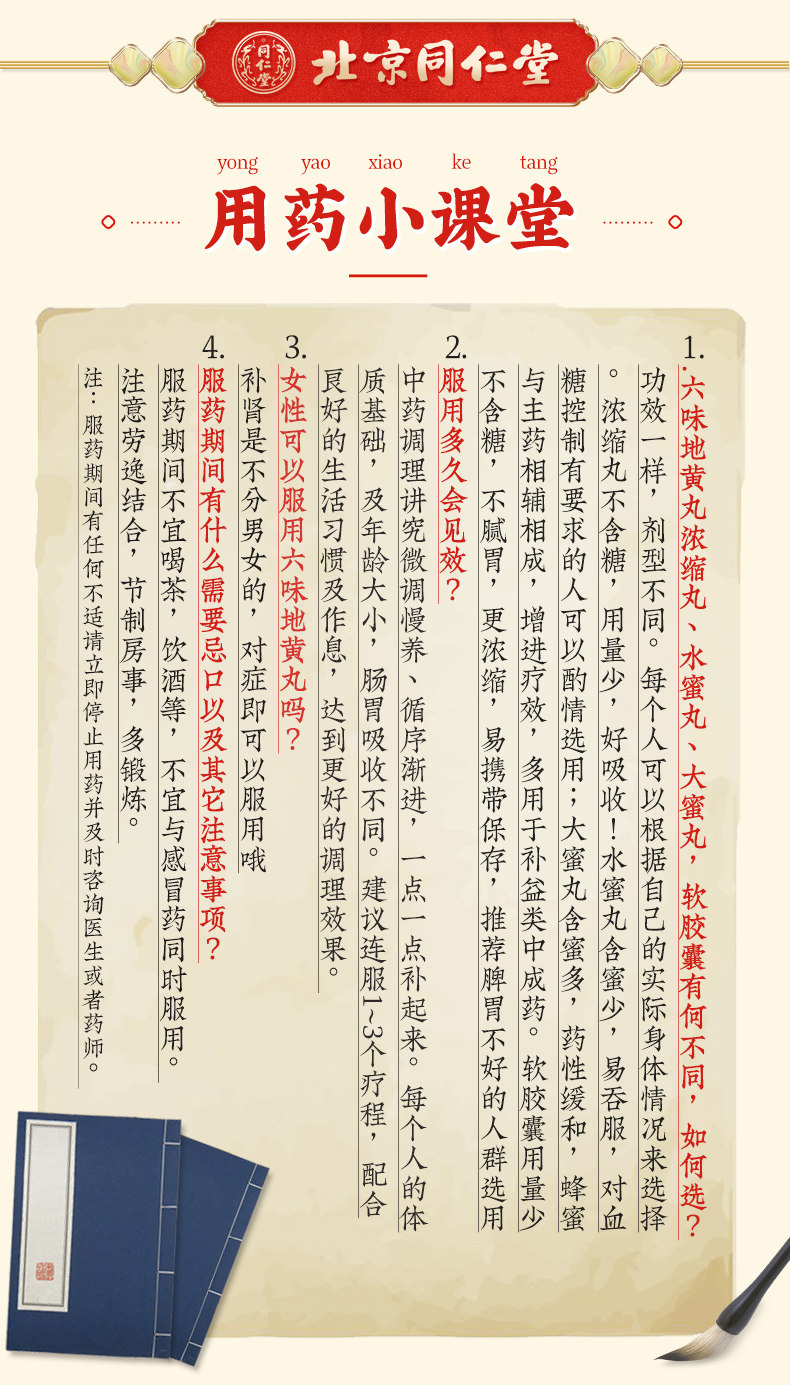 同仁堂
北京同仁堂
yong yao xiao ke tang
用药小课堂
1.
六味地黄丸浓缩丸、水蜜丸、大蜜丸，软胶囊有何不同，如何选？
功效一样，剂型不同。每个人可以根据自己的实际身体情况来选择
。浓缩丸不含糖，用量少，好吸收！水蜜丸含蜜少，易吞服，对血
糖控制有要求的人可以酌情选用；大蜜丸含蜜多，药性缓和，蜂蜜
与主药相辅相成，增进疗效，多用于补益类中成药。软胶囊用量少
不含糖，不腻胃，更浓缩，易携带保存，推荐脾胃不好的人群选用
2.
服用多久会见效？
中药调理讲究微调慢养、循序渐进，一点一点补起来。每个人的体
质基础，及年龄大小，肠胃吸收不同。建议连服1~3个疗程，配合
良好的生活习惯及作息，达到更好的调理效果。
3.
女性可以服用六味地黄丸吗？
补肾是不分男女的，对症即可以服用哦
4.
服药期间有什么需要忌口以及其它注意事项？
服药期间不宜喝茶，饮酒等，不宜与感冒药同时服用。
注意劳逸结合，节制房事，多锻炼。
注：服药期间有任何不适请立即停止用药并及时咨询医生或者药师。